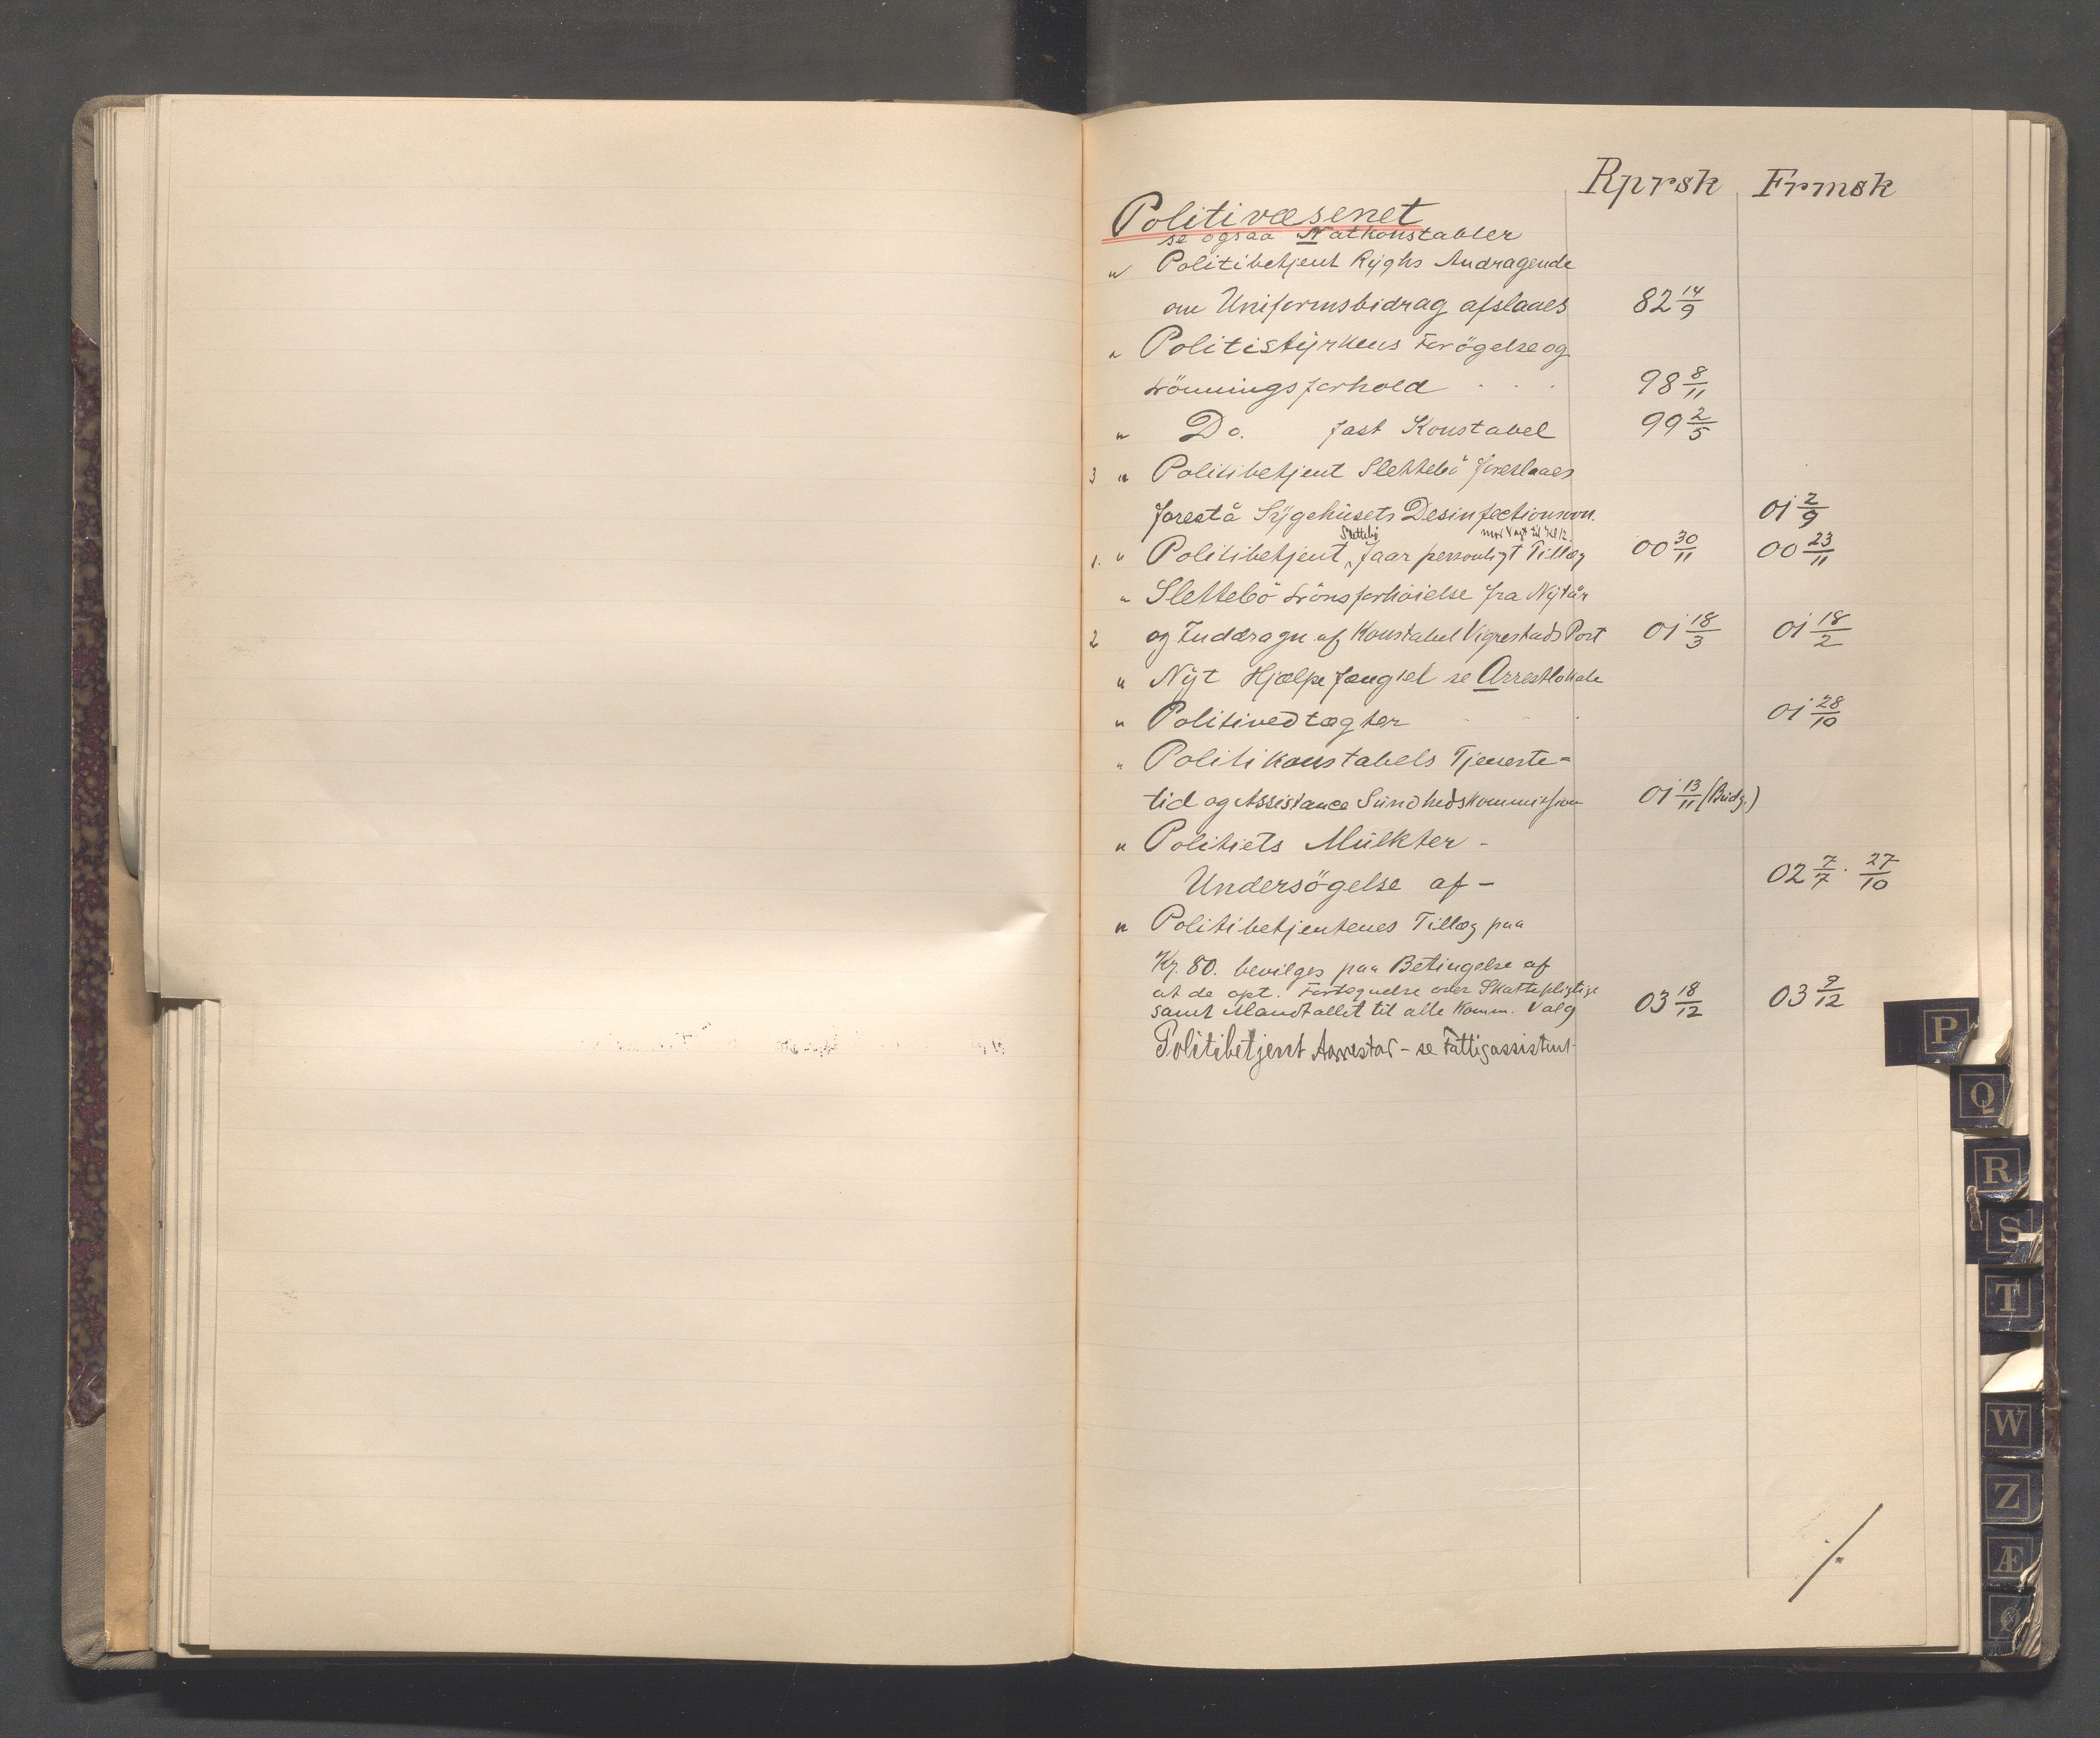 Rprsk Frmsk
Politivæsenet
se ogsaa Natkonstabler
" Politibetjent Ryghs Andragende
om Uniformsbidrag afslaaes 82 14/9
" Politistyrkens Forögelse og
Lönningsforhold . . . 98 8/11
" Do. fast Konstabel 99 2/5
3 " Politibetjent Slettebö foreslaaes
forestå Sygehusets Desinfectionsovn. 01 2/9
Slettebö mod Vagt til Kl 12.
1. " Politibetjent faar personligt Tillæg 00 30/11 00 23/11
" Slettebö Lönsforhöielse fra Nytår
2 og Inddragn af Konstabel Vigrestads Post 01 18/3 01 18/2
" Nyt Hjælpefængsel se Arrestlokale
" Politivedtægter 01 28/10
" Politikonstabels Tjeneste-
tid og Assistance Sundhedskommission 01 13/11 (Budg.)
" Politiets Mulkter -
Undersögelse af - 02 7/7 . 27/10
" Politibetjentenes Tillæg paa
Kr. 80. bevilges paa Betingelse af
at de opt. Fortegnelse over Skattepligtige
samt Mandtallet til alle Komm. Valg 03 18/12 03 9/12
Politibetjent - se Fattigassistent
P
Q
R
S
T
W
Z
Æ
Ø